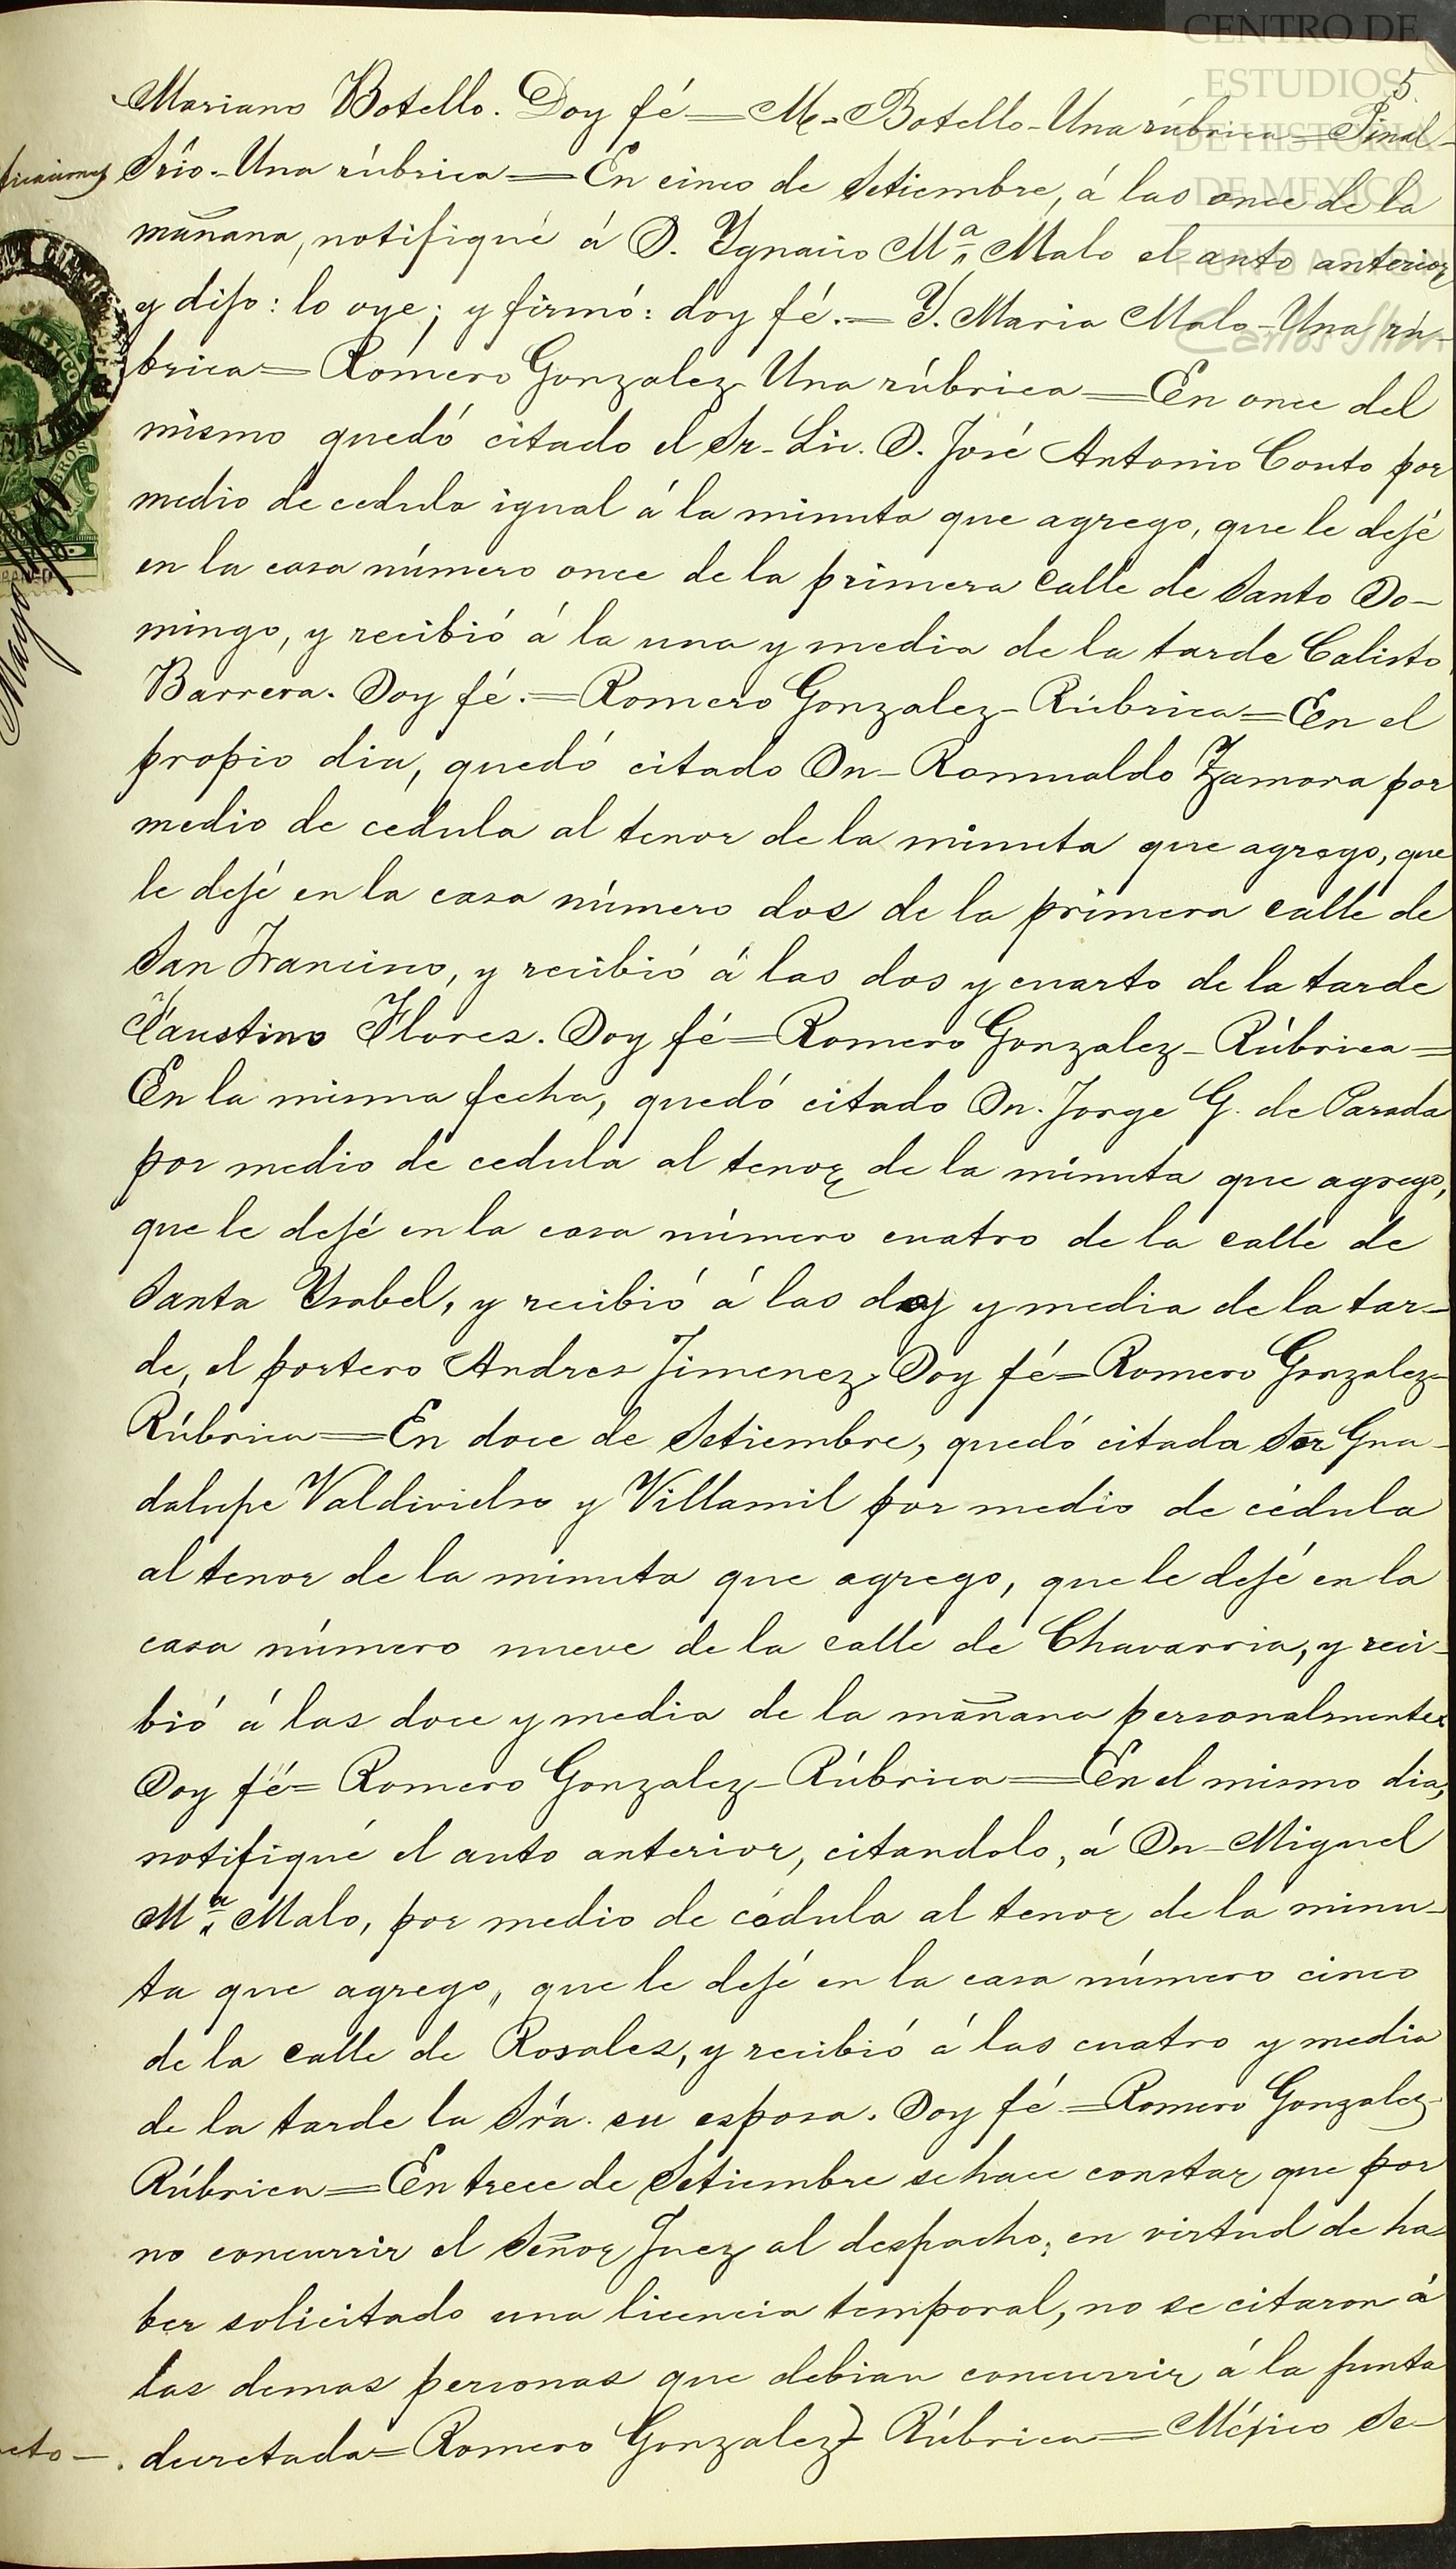 CENTRO DE
ESTUDIOS
DE HISTORIA
DE MEXICO
FUNDACION
Carlos Slim
5
Mariano Botello. Doy fé = M. Botello - Una rúbrica = Pinal -
Srio. - Una rúbrica = En cinco de Setiembre, á las once de la
mañana, notifiqué á D. Ygnacio Mª Malo el auto anterior
y dijo: lo oye; y firmó: doy fé. = Y. Maria Malo - Una rú-
brica = Romero Gonzalez - Una rúbrica = En once del
mismo quedó citado el Sr. Lic. D. José Antonio Couto por
medio de cedula igual á la minuta que agrego, que le dejé
en la casa número once de la primera calle de Santo Do-
mingo, y recibió á la una y media de la tarde Calisto
Barrera. Doy fé. = Romero Gonzalez - Rúbrica = En el
propio dia, quedó citado Dn. Romualdo Zamora por
medio de cedula al tenor de la minuta que agrego, que
le dejé en la casa número dos de la primera calle de
San Francisco, y recibió á las dos y cuarto de la tarde
Faustino Flores. Doy fé = Romero Gonzalez - Rúbrica =
En la misma fecha, quedó citado Dn. Jorge G. de Parada
por medio de cedula al tenor de la minuta que agrego,
que le dejé en la casa número cuatro de la calle de
Santa Ysabel, y recibió á las dos y media de la tar-
de, el portero Andres Jimenez. Doy fé = Romero Gonzalez -
Rúbrica = En doce de Setiembre, quedó citada Sor Gua-
dalupe Valdivielso y Villamil por medio de cédula
al tenor de la minuta que agrego, que le dejé en la
casa número nueve de la calle de Chavarria, y reci-
bió á las doce y media de la mañana personalmente.
Doy fé = Romero Gonzalez - Rúbrica = En el mismo dia,
notifiqué el auto anterior, citandolo, á Dn. Miguel
Mª Malo, por medio de cédula al tenor de la minu-
ta que agrego, que le dejé en la casa número cinco
de la calle de Rosales, y recibió á las cuatro y media
de la tarde la Sra. su esposa. Doy fé = Romero Gonzalez -
Rúbrica = En trece de Setiembre se hace constar que por
no concurrir el Señor Juez al despacho, en virtud de ha-
ber solicitado una licencia temporal, no se citaron á
las demas personas que debian concurrir á la junta
decretada = Romero Gonzalez - Rúbrica = México Se-
Mayo
MEXICO